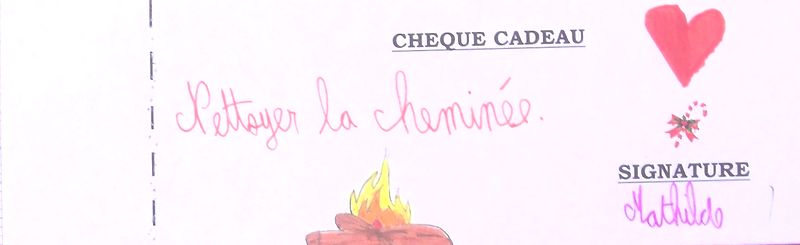 CHEQUE CADEAU
Nettoyer la cheminée.
SIGNATURE
Mathilde